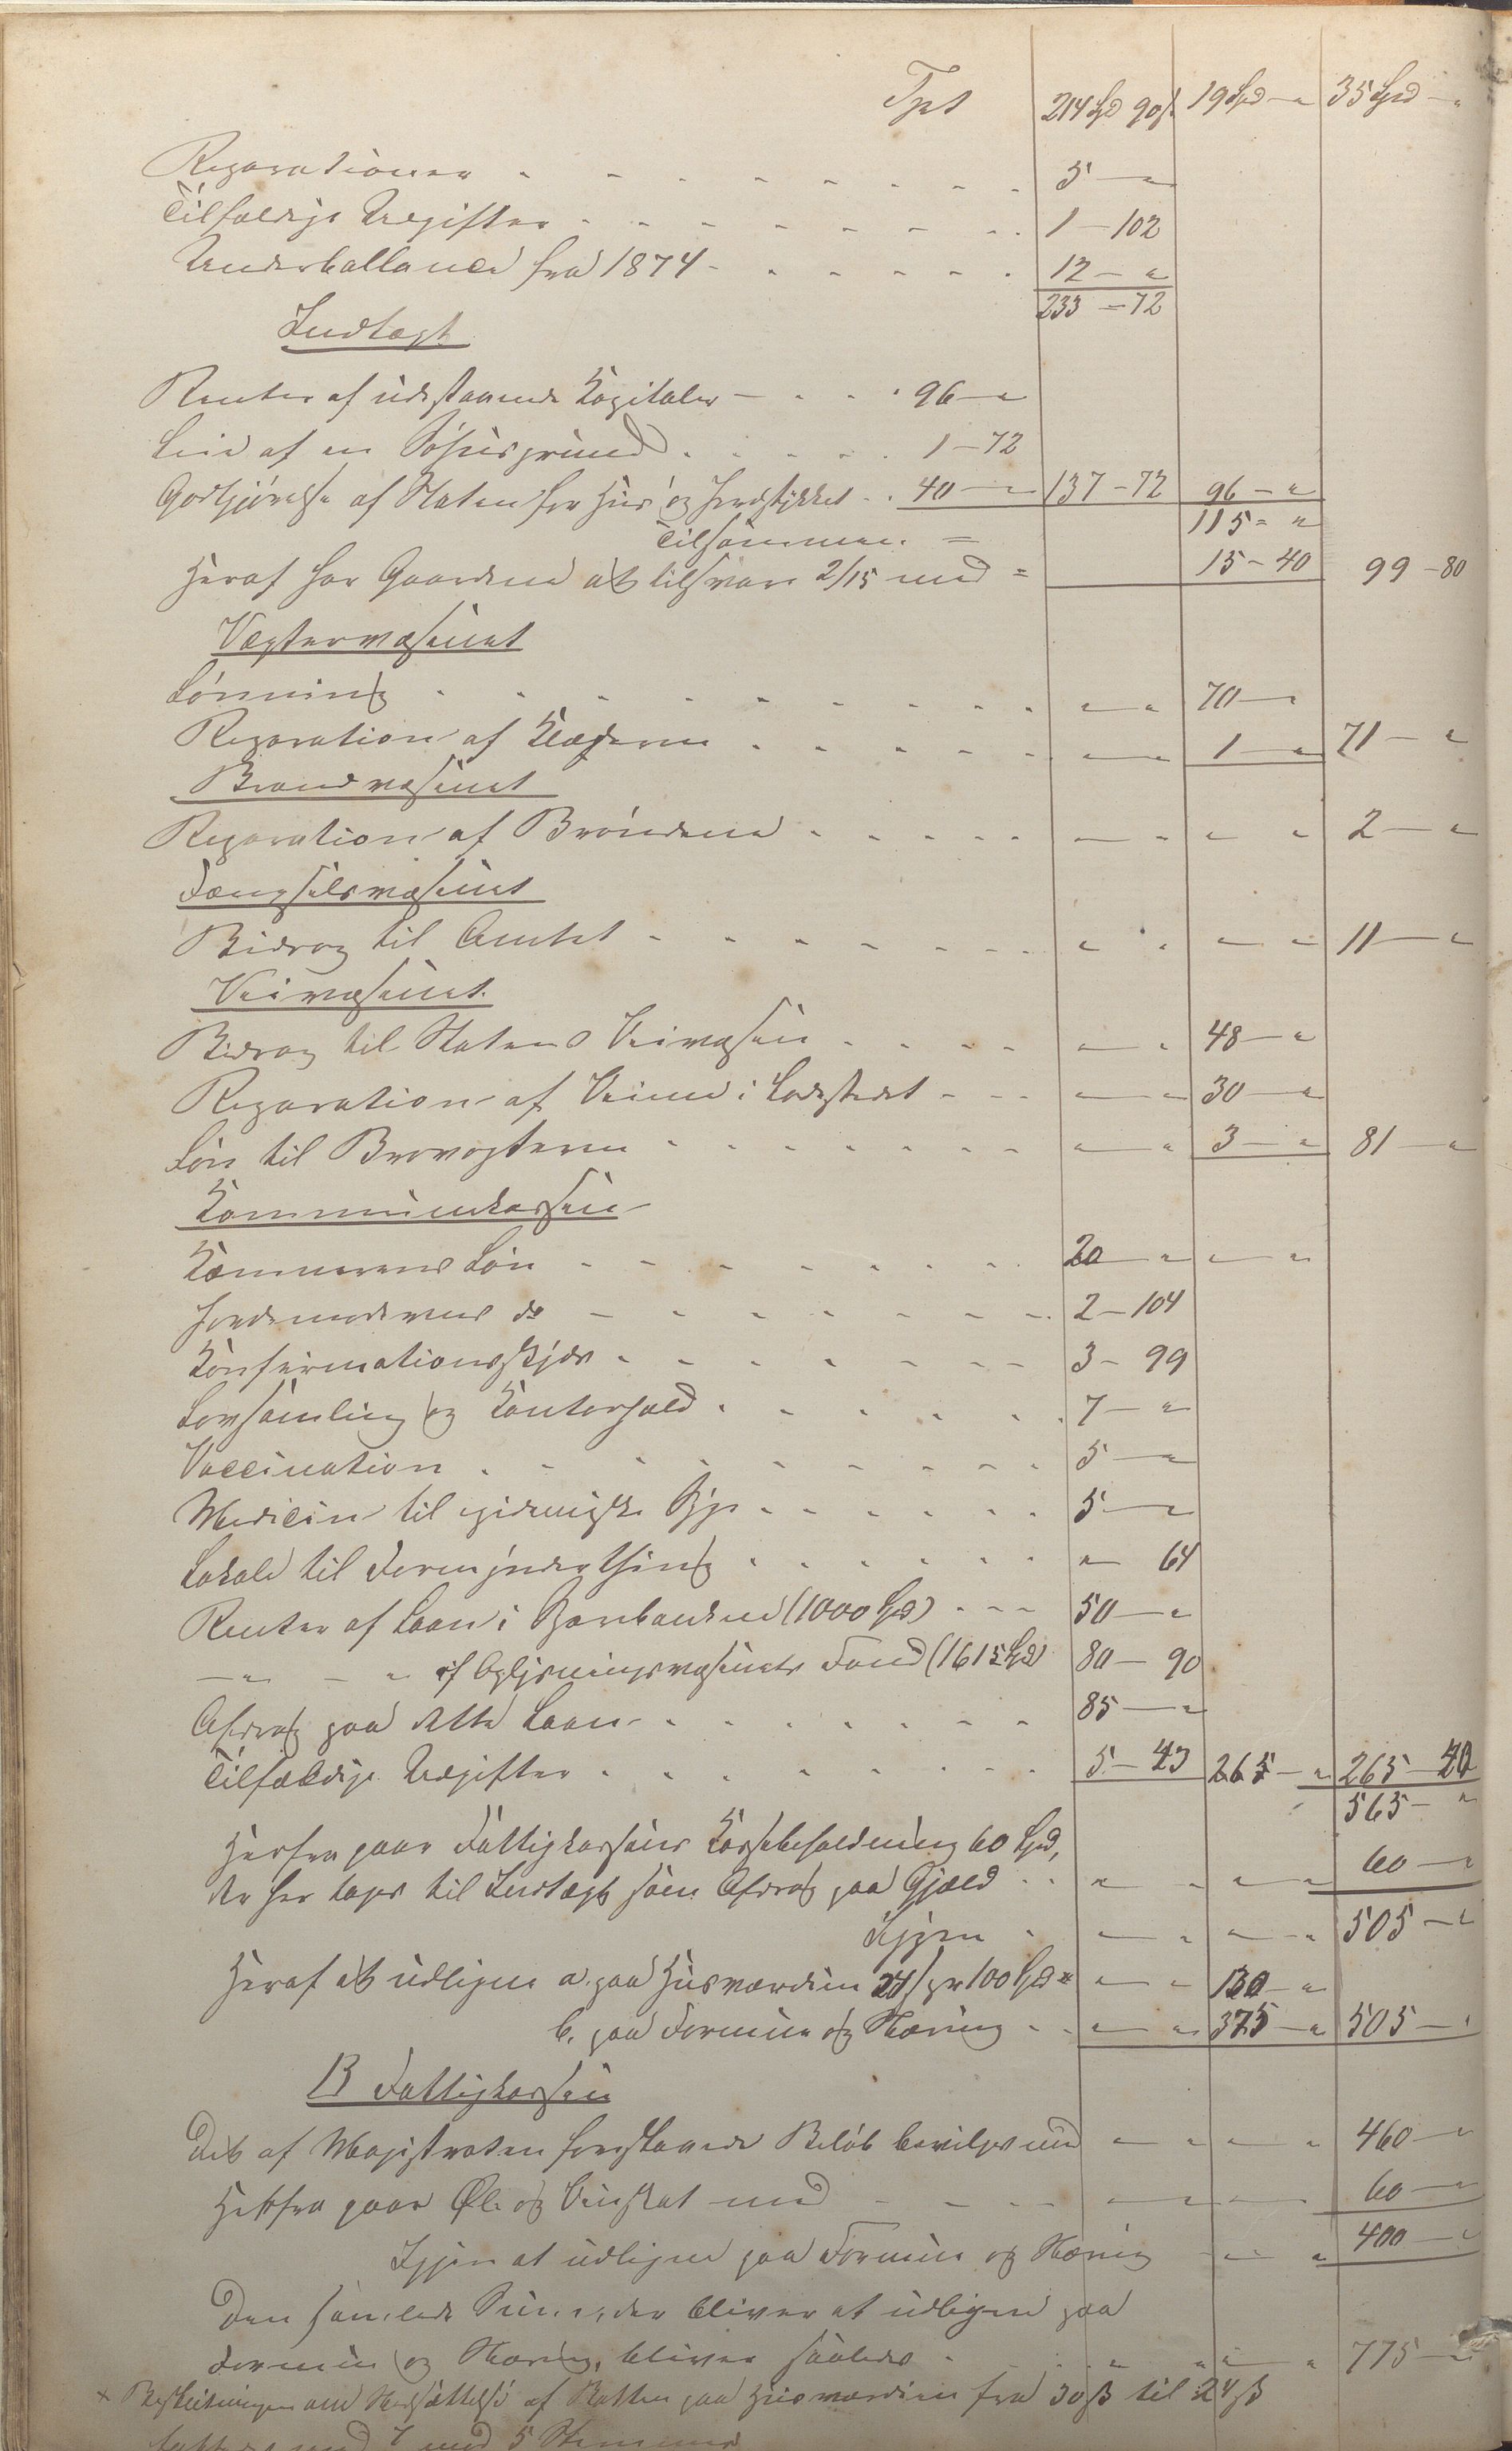 Tpt 214 Spd 90ß 19 Spd - " 35 Spd - "
Reparationer - - - 5 - "
Tilfældige Udgifter - - - 1 - 102
Underballance fra 1874 - - - 12 - "
233 - 72
Indtægt
Renter af udestaaende Kapitaler - - - 96 - "
Leie af en Søhusgrund - - - 1 - 72
Godtgjørelse af Staten for Huus og Jordstykket - - 40 - " 137 - 72 96 - "
Tilsammen = 115 - "
Heraf har Gaardene at tilsvare 2/15 med = 15 - 40 99 - 80
Vægtervæsenet
Lønning - - - " - " 70 - "
Reparation af Klæderne - - - " - " 1 - " 71 - "
Brandvæsenet
Reparation af Brøndene - - - " - " " " 2 - "
Fængselsvæsenet
Bidrag til Amtet - - - " " " - " 11 - "
Veivæsenet.
Bidrag til Statens Veivæsen - - - " - " 48 - "
Reparation af Veiene i Ladestedet - - - " - " 30 - "
Løn til Brovogteren - - - " - " 3 - " 81 - "
Kommunekassen
Kæmnerens Løn - - - 20 - " " - "
Jordemoderens do - - - 2 - 104
Konfirmationsskjør - - - 3 - 99
Lovsamling og Kontorhold - - - 7 - "
Vaccination - - - 5 - "
Medicin til epidemiske Syge - - - 5 - "
Lokale til Formynderthing - - - " - 64
Renter af Laan i Sparebanken (1000 Spd) - - - 50 - "
- " - " af Oplysningsvæsenets Fond (1615 Spd) 80 - 90
Afdrag paa dette Laan - - - 85 - "
Tilfældige Udgifter - - - 5 - 43 265 - " 265 - 40
565 - "
Herfra gaar Fattigkassens Kassebeholdning 60 Spd,
der her tages til Indtægt som Afdrag paa Gjæld - - " - " " - " 60 - "
Igjen - " - " " - " 505 - "
Heraf at udligne a. paa Husværdien 24ß pr 100 Spd = " - " 130 - "
b. paa Formue og Næring - - " - " 375 - " 505 - "
B Fattigkassen
Det af Magistraten foreslaaede Beløb bevilges med " - " " - " 460 - "
Herfra gaar Øl- og Vinskat med - - - " - " " - 60 - "
Igjen at udligne paa Formue og Næring " - " 400 - "
Den samlede Sum, der bliver at udligne paa
Formue og Næring, bliver saaledes - " " " - " 775 - "
x Beslutningen om Nedsættelse af Skatten paa Husværdien fra 30ß til 24ß
med 7 mod 5 Stemmer